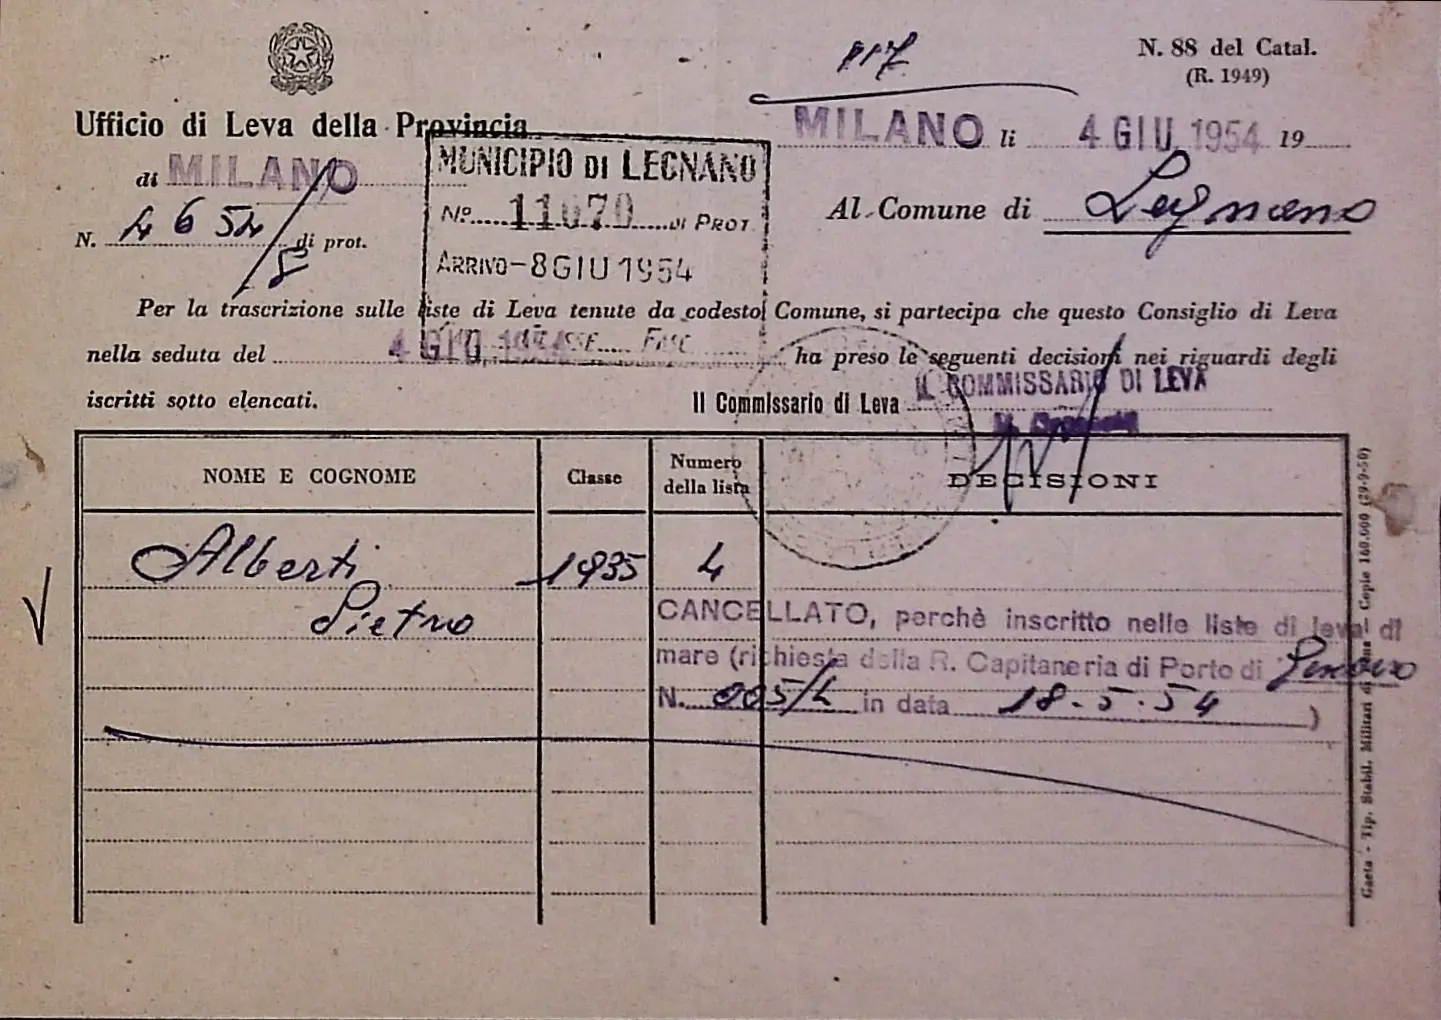 N. 88 del Catal.
(R. 1949)
Ufficio di Leva della Provincia
di MILANO
N. 4654/8 di prot.
MUNICIPIO DI LEGNANO
No. 11070 DI PROT.
ARRIVO - 8 GIU 1954
MILANO li 4 GIU. 1954 19
Al Comune di Legnano
Per la trascrizione sulle liste di Leva tenute da codesto Comune, si partecipa che questo Consiglio di Leva
nella seduta del 4 GIU. ha preso le seguenti decisioni nei riguardi degli
iscritti sotto elencati.
Il Commissario di Leva IL COMMISSARIO DI LEVA
NOME E COGNOME Classe Numero della lista DECISIONI
Alberti 1935 4
Pietro
CANCELLATO, perchè inscritto nelle liste di leva di
mare (richiesta della R. Capitaneria di Porto di Genova
N. 005/L in data 18.5.54 )
Gaeta - Tip. Stabil. Militari di Pena - Copie 160.000 (29-9-50)